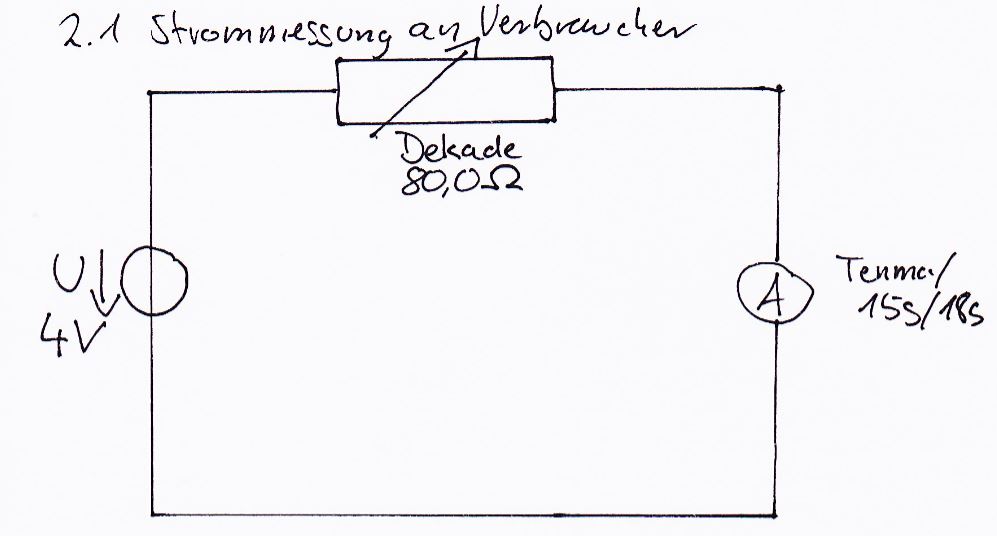 2.1 Strommessung an Verbraucher
Dekade
80,0Ω
U
4V
A
Tenma/
15s/18s